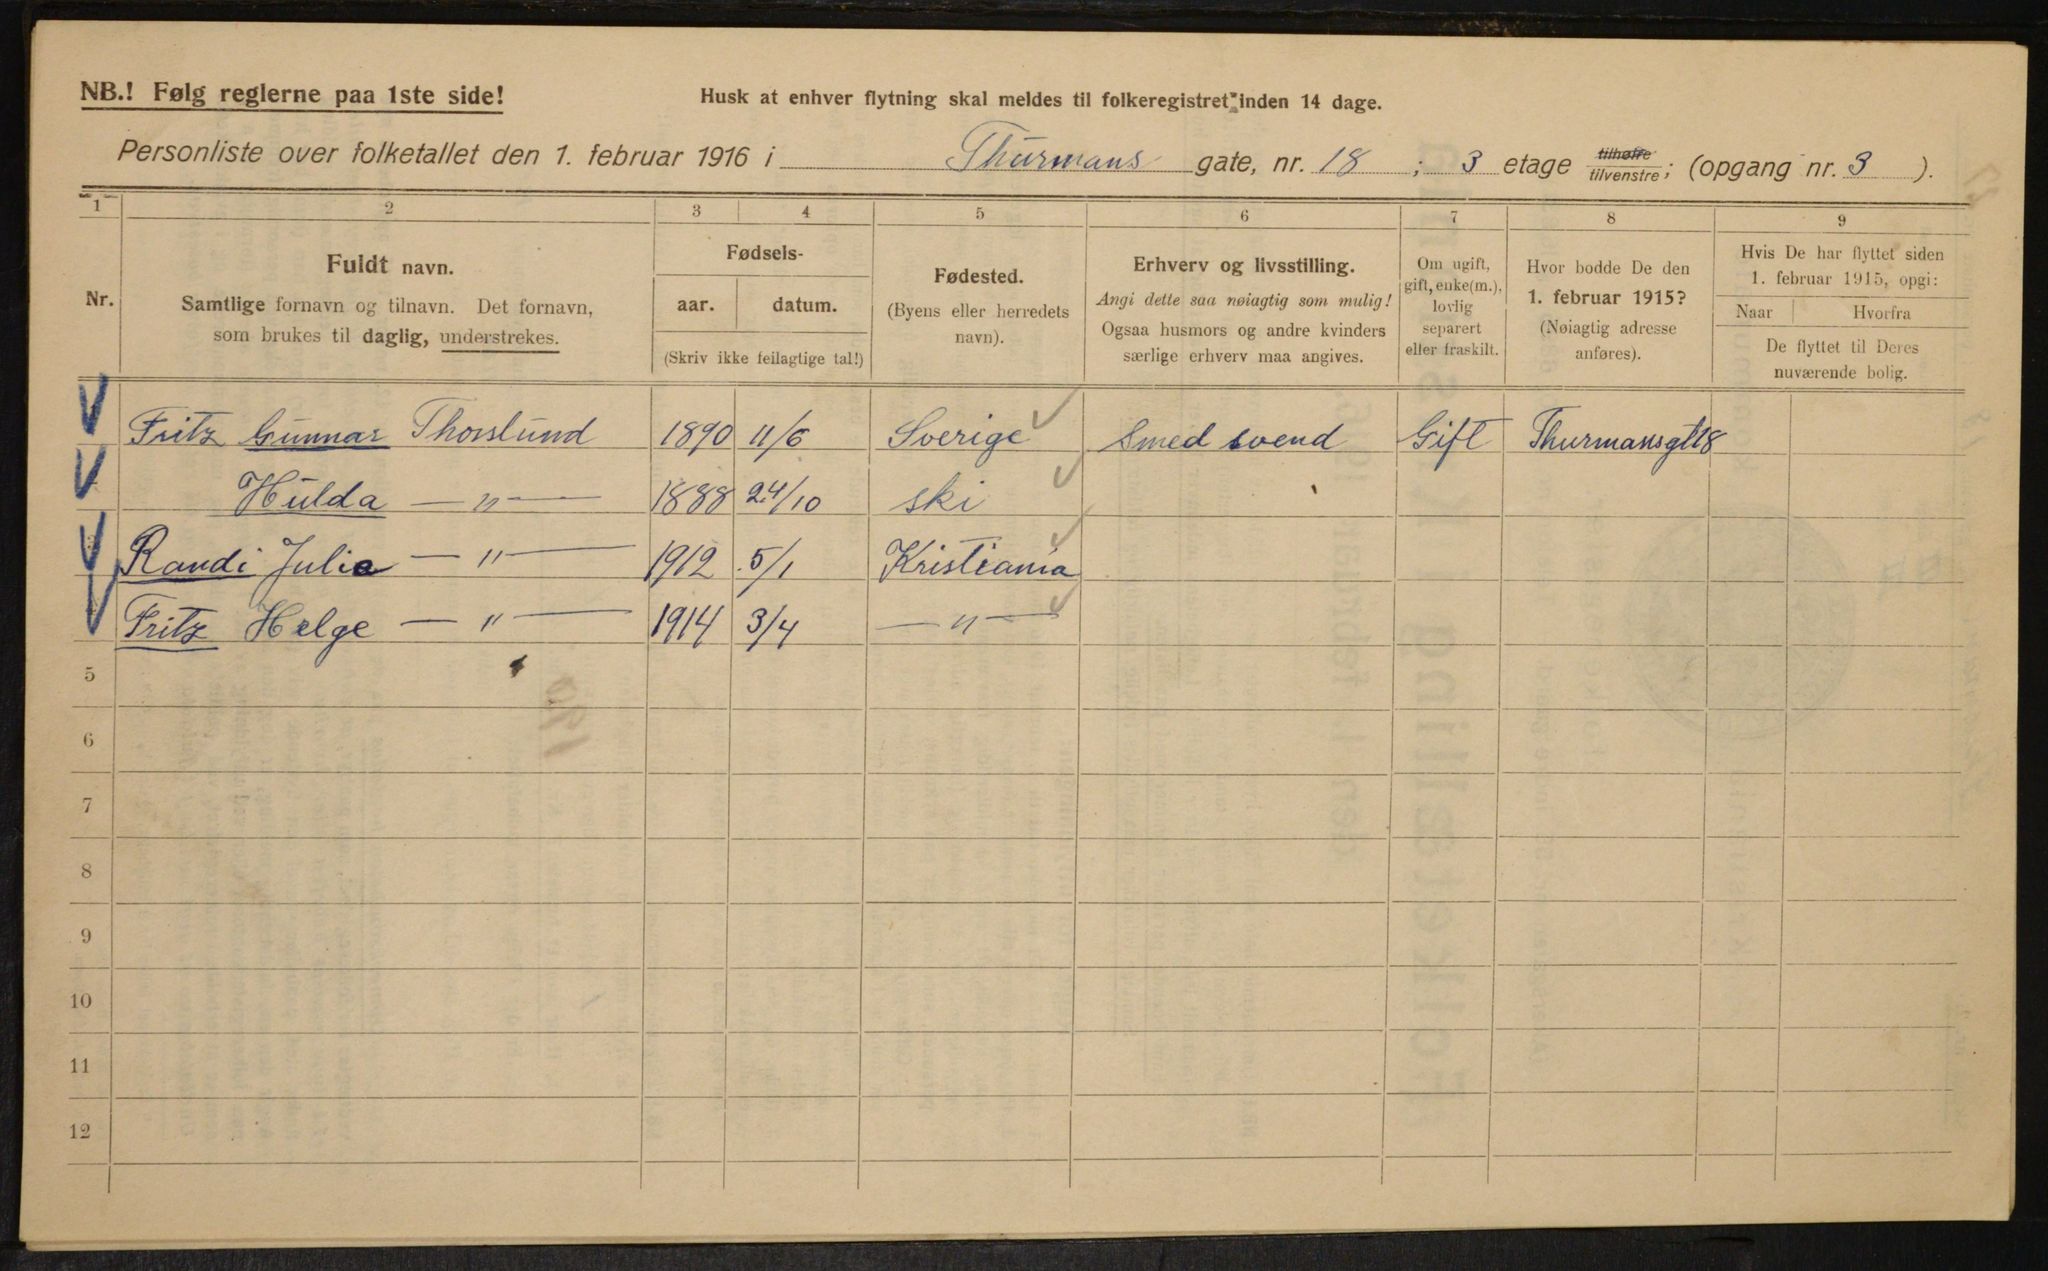 NB.! Følg reglerne paa 1ste side!
Husk at enhver flytning skal meldes til folkeregistret inden 14 dage.
Personliste over folketallet den 1. februar 1916 i Thurmans gate, nr. 18; 3 etage tilhøire tilvenstre; (opgang nr. 3).
1 2 3 4 5 6 7 8 9
Nr.
Fuldt navn.
Samtlige fornavn og tilnavn. Det fornavn,
som brukes til daglig, understrekes.
Fødsels-
aar. datum.
(Skriv ikke feilagtige tal!)
Fødested.
(Byens eller herredets
navn).
Erhverv og livsstilling.
Angi dette saa nøiagtig som mulig!
Ogsaa husmors og andre kvinders
særlige erhverv maa angives.
Om ugift,
gift, enke(m.),
lovlig
separert
eller fraskilt.
Hvor bodde De den
1. februar 1915?
(Nøiagtig adresse
anføres).
Hvis De har flyttet siden
1. februar 1915, opgi:
Naar Hvorfra
De flyttet til Deres
nuværende bolig.
Fritz Gunnar Thorslund 1890 11/6 Sverige Smed svend Gift Thurmansgt 18
Hulda — " — 1888 24/10 Ski
Randi Julie — " — 1912 5/1 Kristiania
Fritz Helge — " — 1914 3/4 — " —
5
6
7
8
9
10
11
12